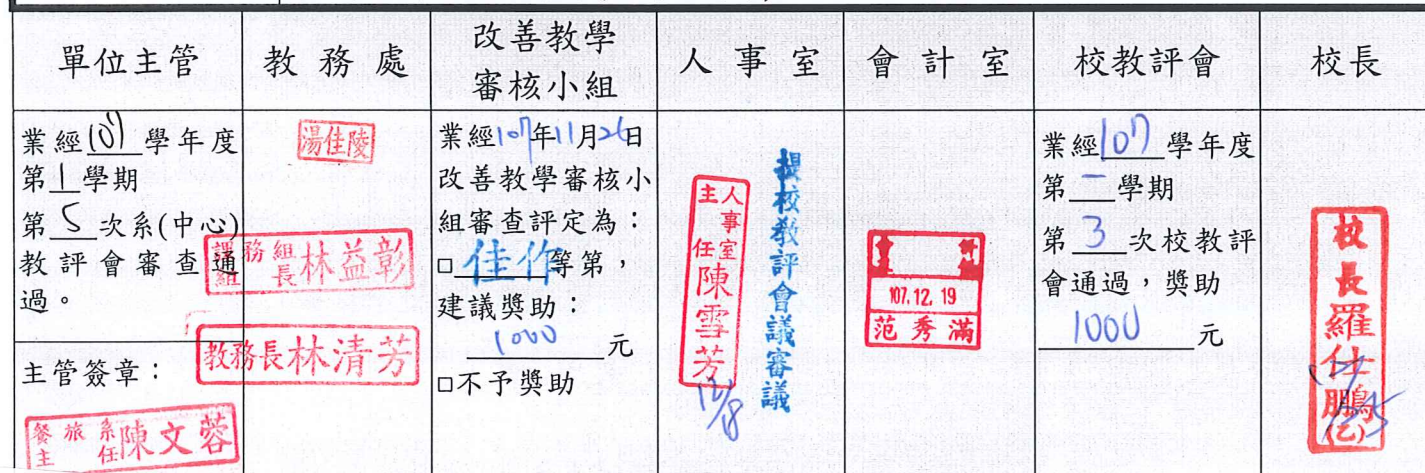 單位主管
教務處
改善教學
審核小組
人事室
會計室
校教評會
校長
業經107學年度
第1學期
第5次系(中心)
教評會審查通
過。
主管簽章：
餐旅系
主任
陳文蓉
湯佳陵
課務組
組長
林益彰
教務長林清芳
業經107年11月26日
改善教學審核小
組審查評定為：
□佳作等第，
建議獎助：
1000元
□不予獎助
人事室
主任
陳雪芳
12/18
提校教評會議審議
107.12.19
范秀滿
業經107學年度
第一學期
第3次校教評
會通過，獎助
1000元
校長羅仕鵬
(乙)